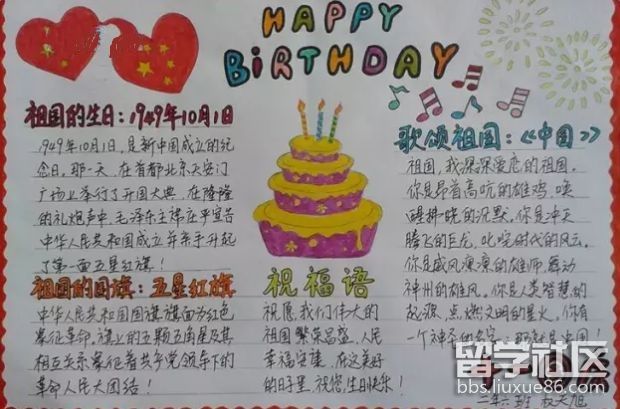 HAPPY
BiRTHDAY
祖国的生日：1949年10月1日
1949年10月1日，是新中国成立的纪
念日。那一天，在首都北京天安门
广场上举行了开国大典，在隆隆
的礼炮声中，毛泽东主席庄严宣告
中华人民共和国成立并亲手升起
了第一面五星红旗！
祖国的国旗：五星红旗
中华人民共和国国旗旗面为红色
象征革命。旗上的五颗五角星及其
相互关系象征着共产党领导下的
革命人民大团结！
祝福语
祝愿我们伟大的
祖国繁荣昌盛，人民
幸福安康，在这美好
的日子里，祝您生日快乐！
歌颂祖国：《中国》
祖国，我深深爱恋的祖国。
你是昂首高吭的雄鸡，唤
醒拂晓的沉默，你是冲天
腾飞的巨龙，叱咤时代的风云，
你是威风凛凛的雄师，舞动
神州的雄风。你是人类智慧的
起源，点燃文明的星火。你有
一个神圣的名字，那就是中国！
二年六班
留学社区
bbs.liuxue86.com